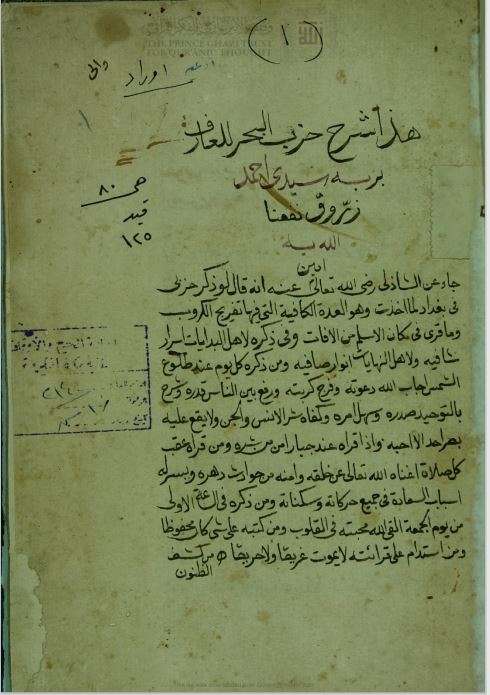 (١)
THE PRINCE GHAZI TRUST
FOR QUR'ANIC THOUGHT
اوراد
هذا شرح حزب البحر للعارف
بربه سيدى احمد
زروق نفعنا
الله به
امين
٨٠
قيد
١٢٥
جاء عن الشاذلى رضى الله تعالى عنه انه قال لو ذكر حزبى
فى بغداد لما اخذت وهو العدة الكافية التى فيها تفريج الكروب
وما قرئ فى مكان الا سلم من الافات وفى ذكره لاهل البدايات اسرار
شافيه ولاهل النهايات انوار صافيه ومن ذكره كل يوم عند طلوع
الشمس اجاب الله دعوته وفرج كربته ورفع بين الناس قدره وشرح
بالتوحيد صدره وسهل امره وكفاه شر الانس والجن ولا يقع عليه
بصر احد الا احبه واذا قراه عند جبار امن من شره ومن قراه عقب
كل صلاة اغناه الله تعالى عن خلقه وامنه من حوادث دهره ويسر له
اسباب السعادة فى جميع حركاته وسكناته ومن ذكره فى الساعة الاولى
من يوم الجمعة القى الله محبته فى القلوب ومن كتبه على شئ كان محفوظا
ومن استدام على قرائته لا يموت غريقا ولا حريقا من كشف
الظنون